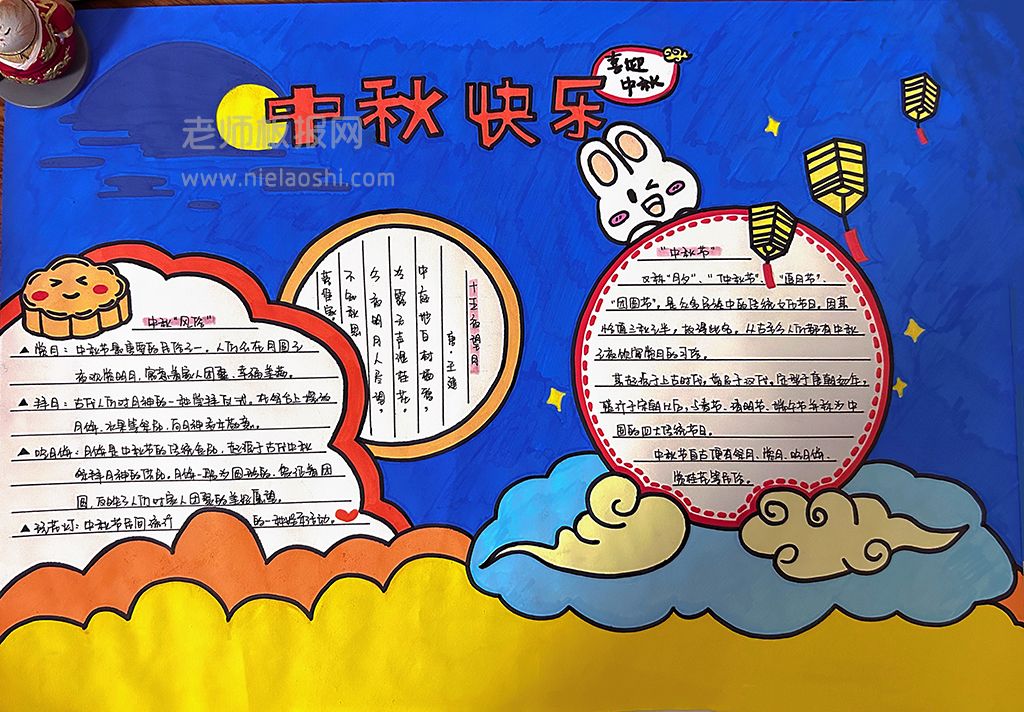 中秋快乐
喜迎
中秋
老师板报网
www.nielaoshi.com
中秋"风俗"
▲赏月：中秋节最重要的月俗之一，人们会在月圆之
夜观赏明月，寓意着家人团聚、幸福美满。
▲拜月：古代人们对月神的一种崇拜仪式，在祭台上摆放
月饼、水果等食品，向月神表示敬意。
▲吃月饼：月饼是中秋节的传统食品，起源于古代中秋
祭拜月神的供品，月饼一般为圆形的，象征着团
圆，反映了人们对家人团聚的美好愿望。
▲玩花灯：中秋节民间流行
的一种娱乐活动。
十五夜望月
唐·王建
中庭地白树栖鸦，
冷露无声湿桂花。
今夜月明人尽望，
不知秋思
落谁家。
"中秋节"
又称"月夕"、"仲秋节"、"追月节"、
"团圆节"，是众多民族中的传统文化节日，因其
恰值三秋之半，故得此名，从古至今人们都有中秋
之夜饮宴赏月的习俗。
其起源于上古时代，普及于汉代，定型于唐朝初年，
盛行于宋朝以后，与春节、清明节、端午节并称为中
国的四大传统节日。
中秋节自古便有祭月、赏月、吃月饼、
赏桂花等民俗。